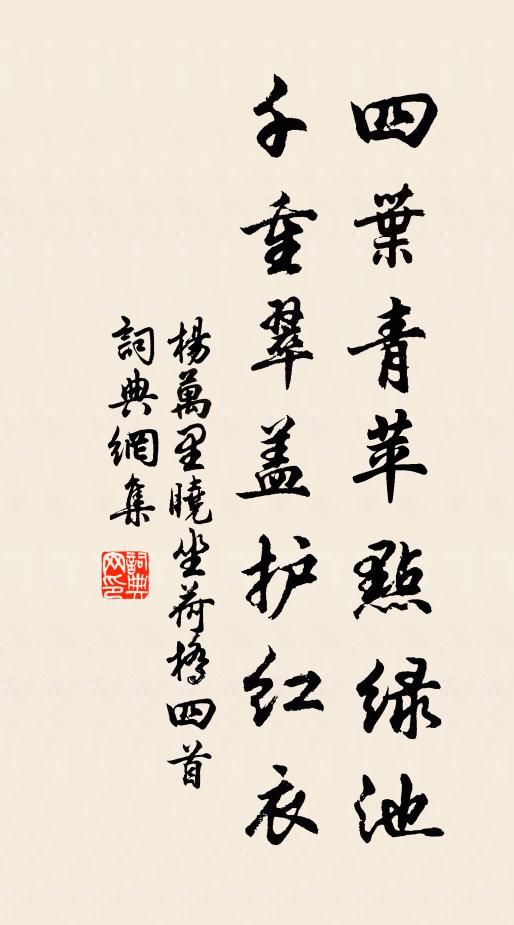 四葉青苹點緑池
千重翠盖护红衣
楊萬里曉坐荷橋四首
詞典網集
詞典网印